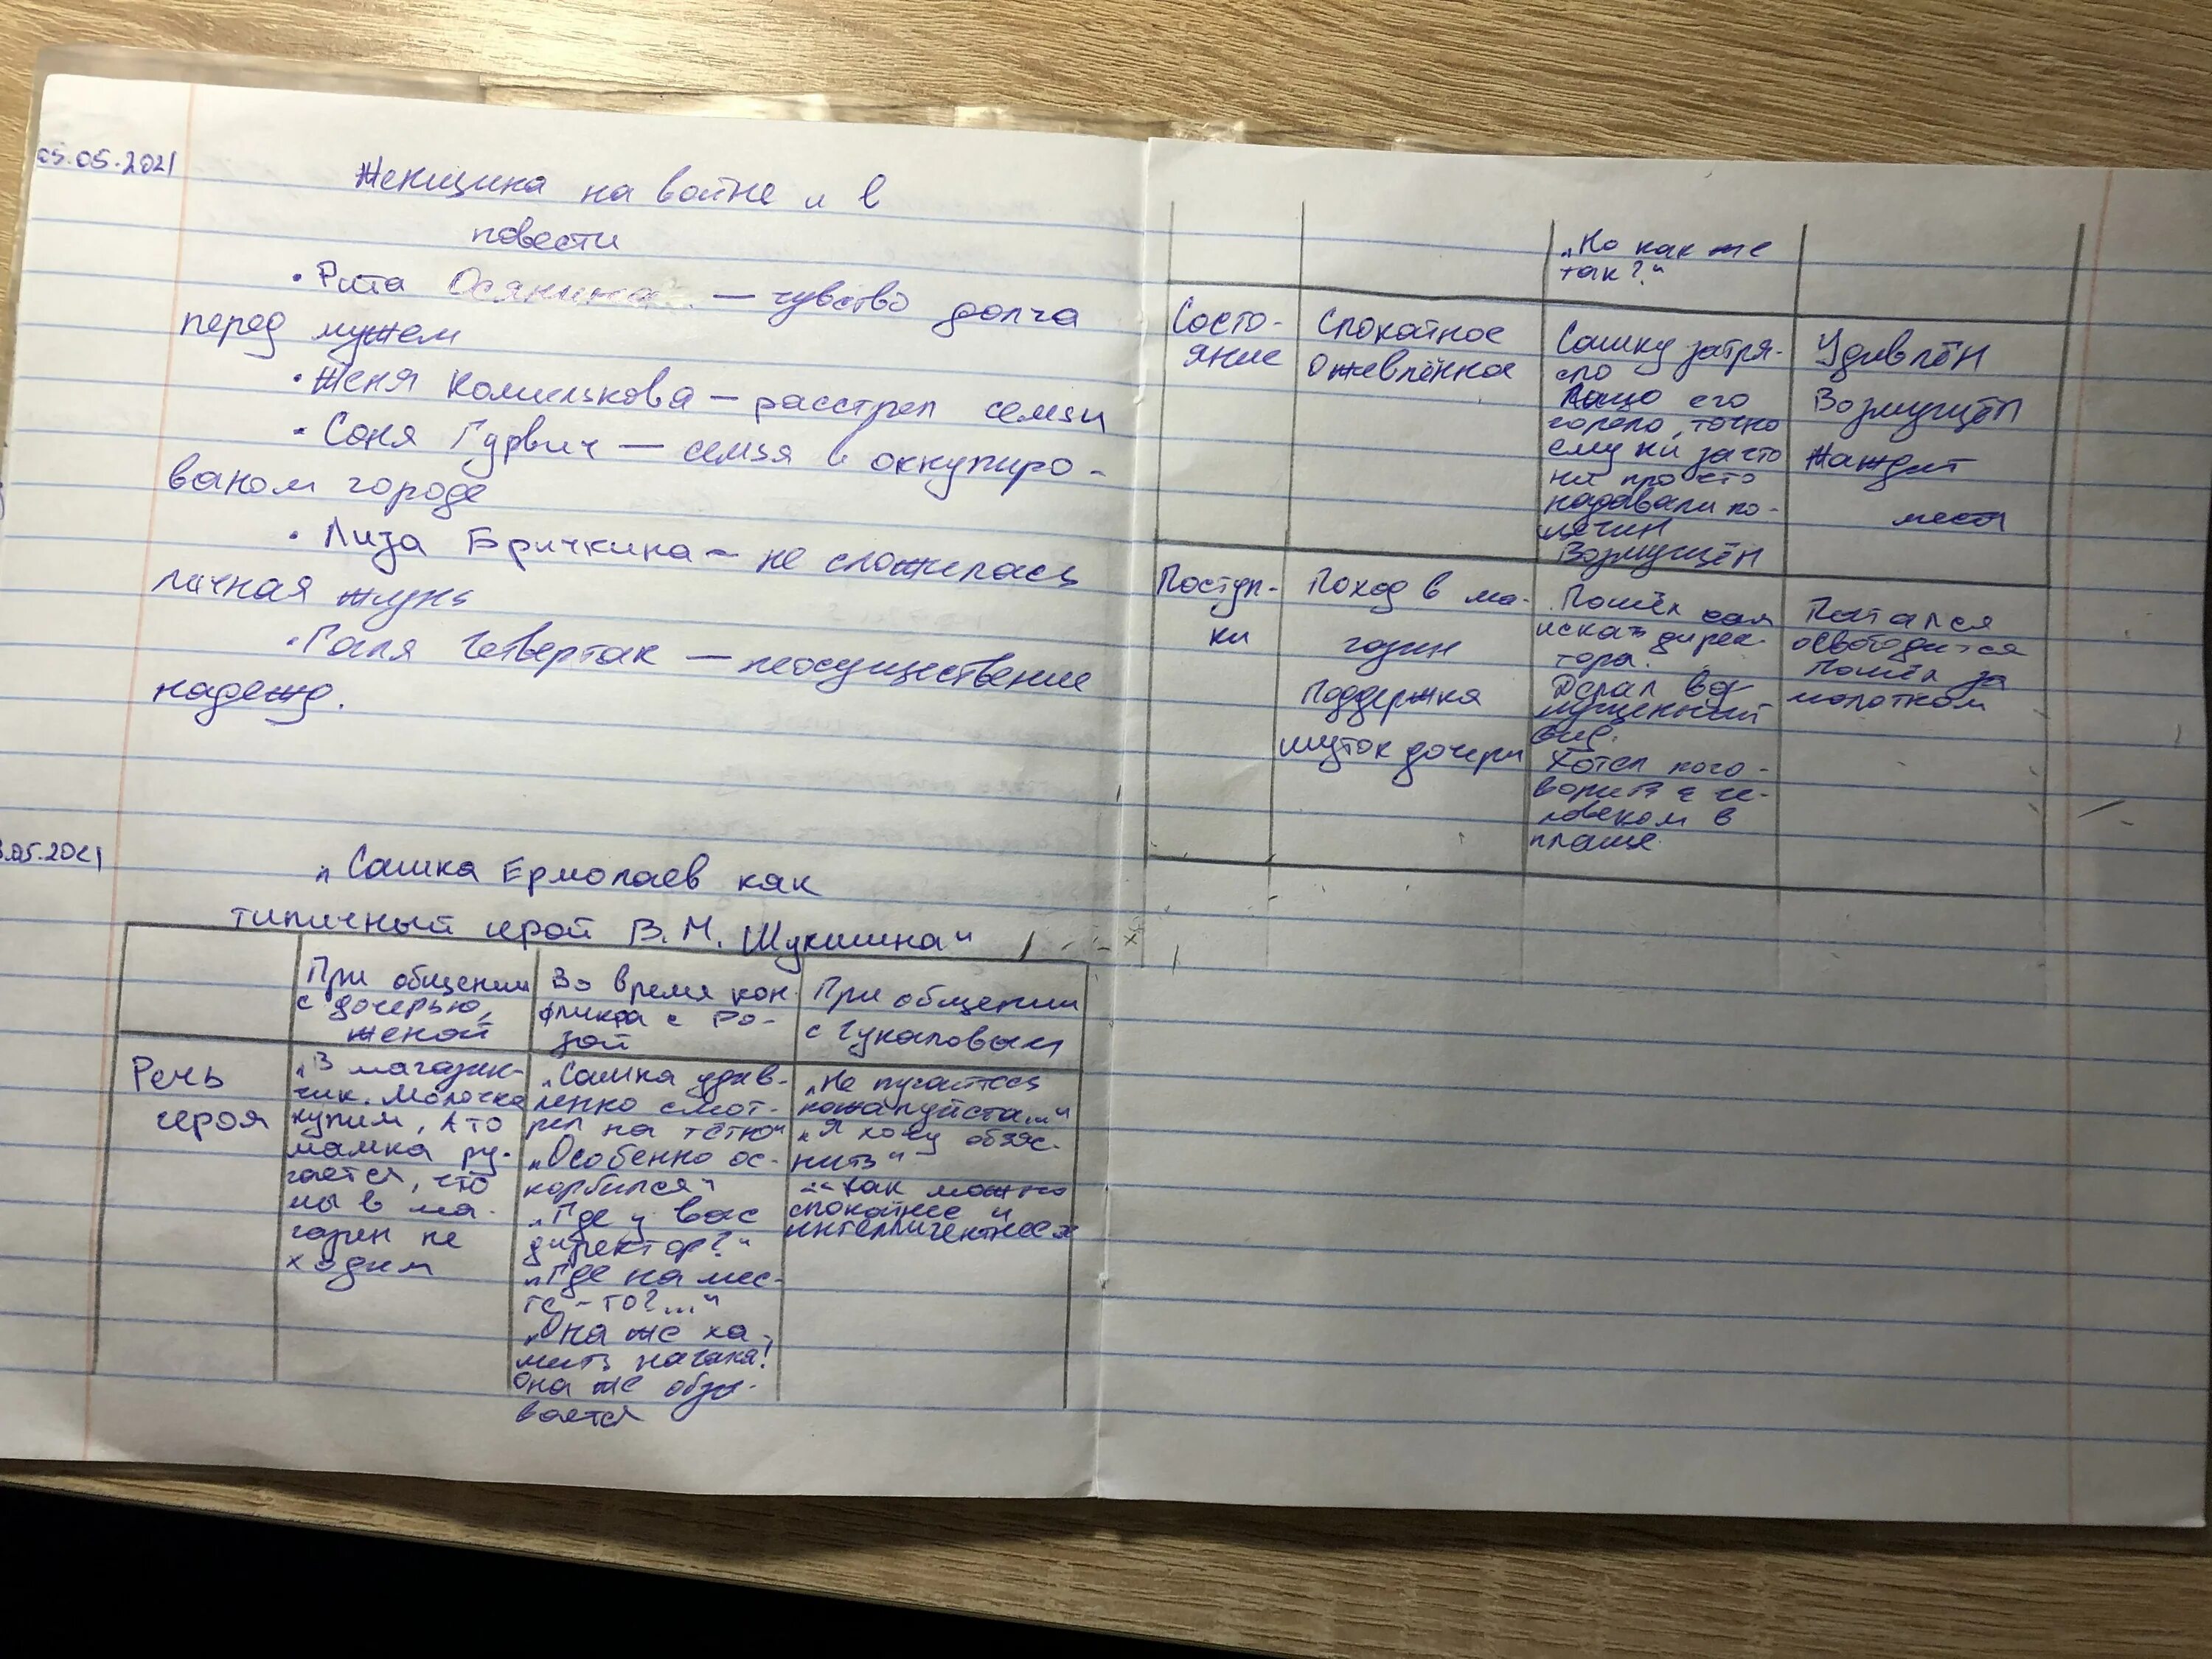 05.05.2021
Женщина на войне и в
повести
• Рита Осянина — чувство долга
перед мужем
• Женя Комелькова — расстрел семьи
• Соня Гурвич — семья в оккупиро-
ваном городе
• Лиза Бричкина — не сложилась
личная жизнь
• Галя Четвертак — неосуществение
надежд.
.05.2021
„Сашка Ермолаев как
типичный герой В.М. Шукшина"
При общении
с дочерью,
женой
Во время кон-
фликта с Ро-
зой
При общении
с Чукаловым
Речь
героя
„В магазин-
чик. Молочка
купим, а то
мамка ру-
гается, что
мы в ма-
газин не
ходим
„Сашка удив-
ленно смот-
рел на тётю"
„Особенно ос-
корбился"
„Где у вас
директор?"
„Где на мес-
те-то?..."
„Она же ха-
мить начала!
Она же обзы-
вается
„Не пугайтесь
пожалуйста..."
„Я хочу объяс-
нить"
„как можно
спокойнее и
интеллигентнее
„Но как же
так?"
Состо-
яние
Спокойное
Оживлённое
Сашку затря-
сло
Лицо его
горело, точно
ему ни за что
ни про что
надавали по-
щечин
Возмущён
Удивлён
Возмущён
Жаждит
мести
Поступ-
ки
Поход в ма-
газин
Поддержка
шуток дочери
Пошёл сам
искать дирек-
тора.
Делал воз-
мущенный
вид.
Хотел пого-
ворить с че-
ловеком в
плаще
Питался
освободится
Пошёл за
молотком